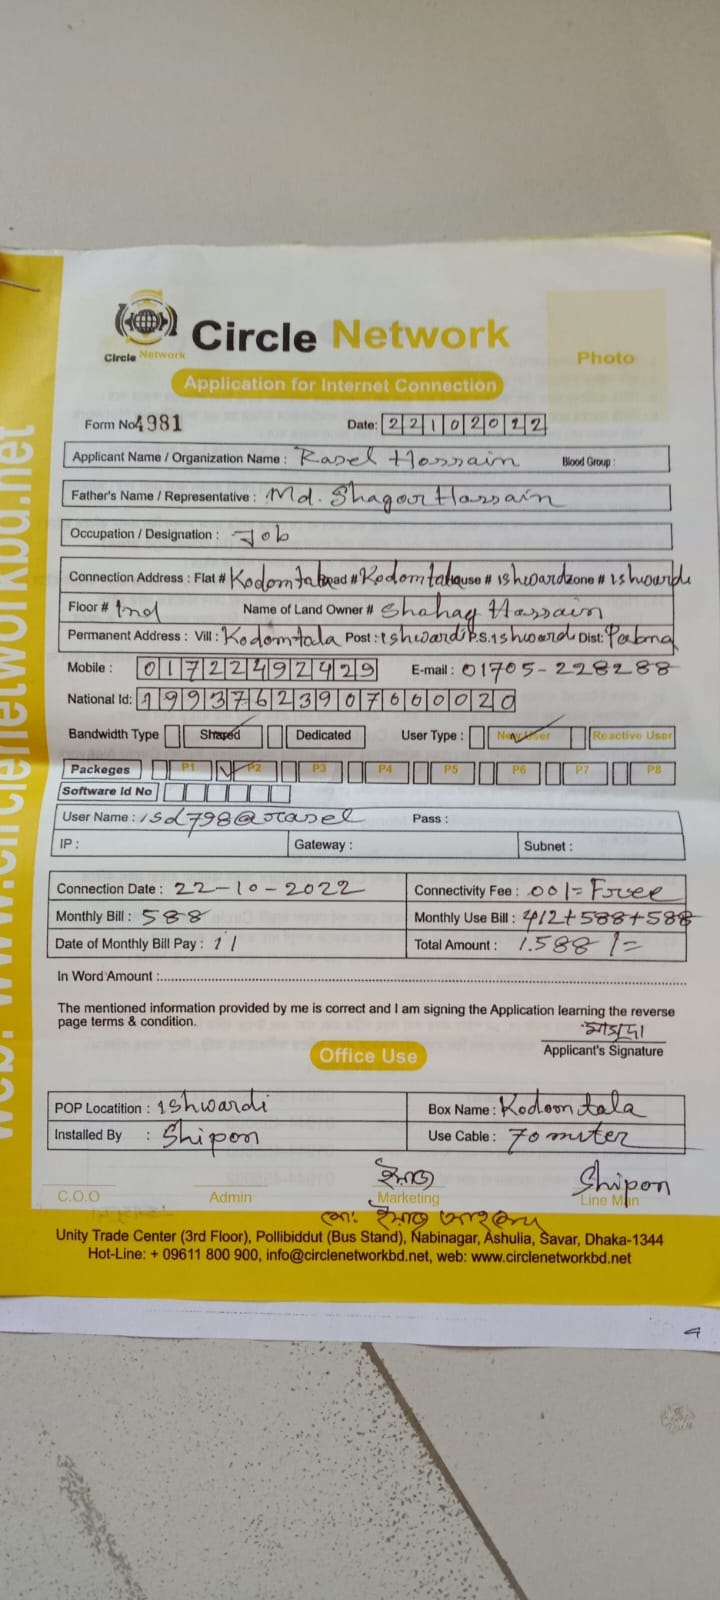 web: www.circlenetworkbd.net
Circle Network
Circle Network
Photo
Application for Internet Connection
Form No 4981 Date: 22102022
Applicant Name / Organization Name : Rasel Hossain Blood Group :
Father's Name / Representative : Md. Shagor Hossain
Occupation / Designation : Job
Connection Address : Flat # Kodomtala Road # Kodomtala House # ishwardi Zone # ishwardi
Floor # Ind Name of Land Owner # Shahag Hossain
Permanent Address : Vill : Kodomtala Post : ishwardi P.S. ishwardi Dist: Pabna
Mobile : 01722492429 E-mail : 01705-228288
National Id: 19937623907000020
Bandwidth Type Shared Dedicated User Type : New User Reactive User
Packeges P1 P2 P3 P4 P5 P6 P7 P8
Software Id No
User Name : isd798@rasel Pass :
IP : Gateway : Subnet :
Connection Date : 22-10-2022 Connectivity Fee : 00/= Free
Monthly Bill : 588 Monthly Use Bill : 412+588+588
Date of Monthly Bill Pay : 11 Total Amount : 1.588/=
In Word Amount :
The mentioned information provided by me is correct and I am signing the Application learning the reverse
page terms & condition.
Applicant's Signature
Office Use
POP Locatition : ishwardi Box Name : Kodomtala
Installed By : Shipon Use Cable : 70 miter
Shipon
C.O.O Admin Marketing Line Man
Unity Trade Center (3rd Floor), Pollibiddut (Bus Stand), Nabinagar, Ashulia, Savar, Dhaka-1344
Hot-Line: + 09611 800 900, info@circlenetworkbd.net, web: www.circlenetworkbd.net